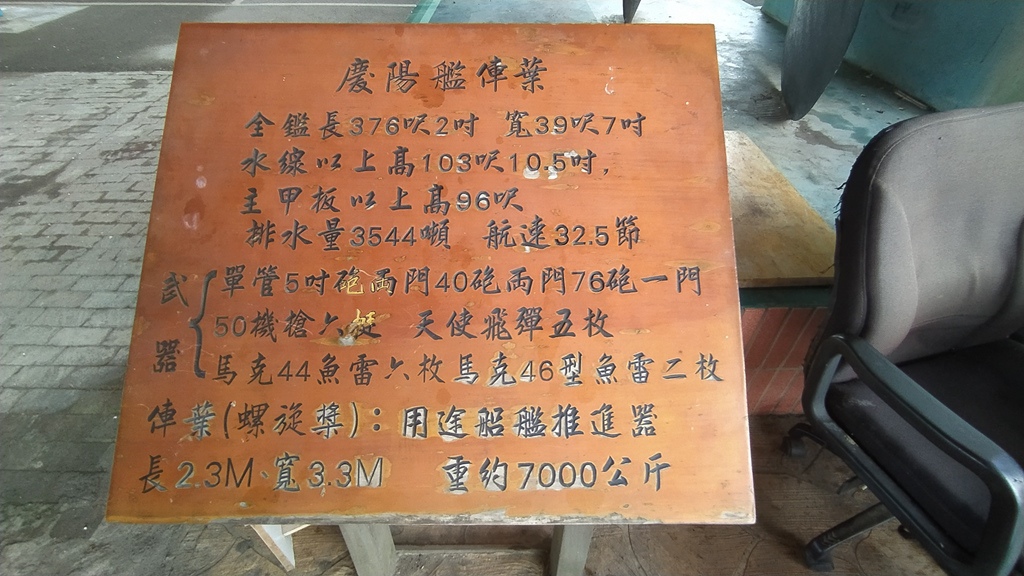 慶陽艦俥葉
全鑑長376呎2吋 寬39呎7吋
水線以上高103呎10.5吋,
主甲板以上高96呎
排水量3544噸 航速32.5節
武器
單管5吋砲兩門40砲兩門76砲一門
50機槍六挺 天使飛彈五枚
馬克44魚雷六枚馬克46型魚雷二枚
俥葉(螺旋槳):用途船艦推進器
長2.3M、寬3.3M 重約7000公斤